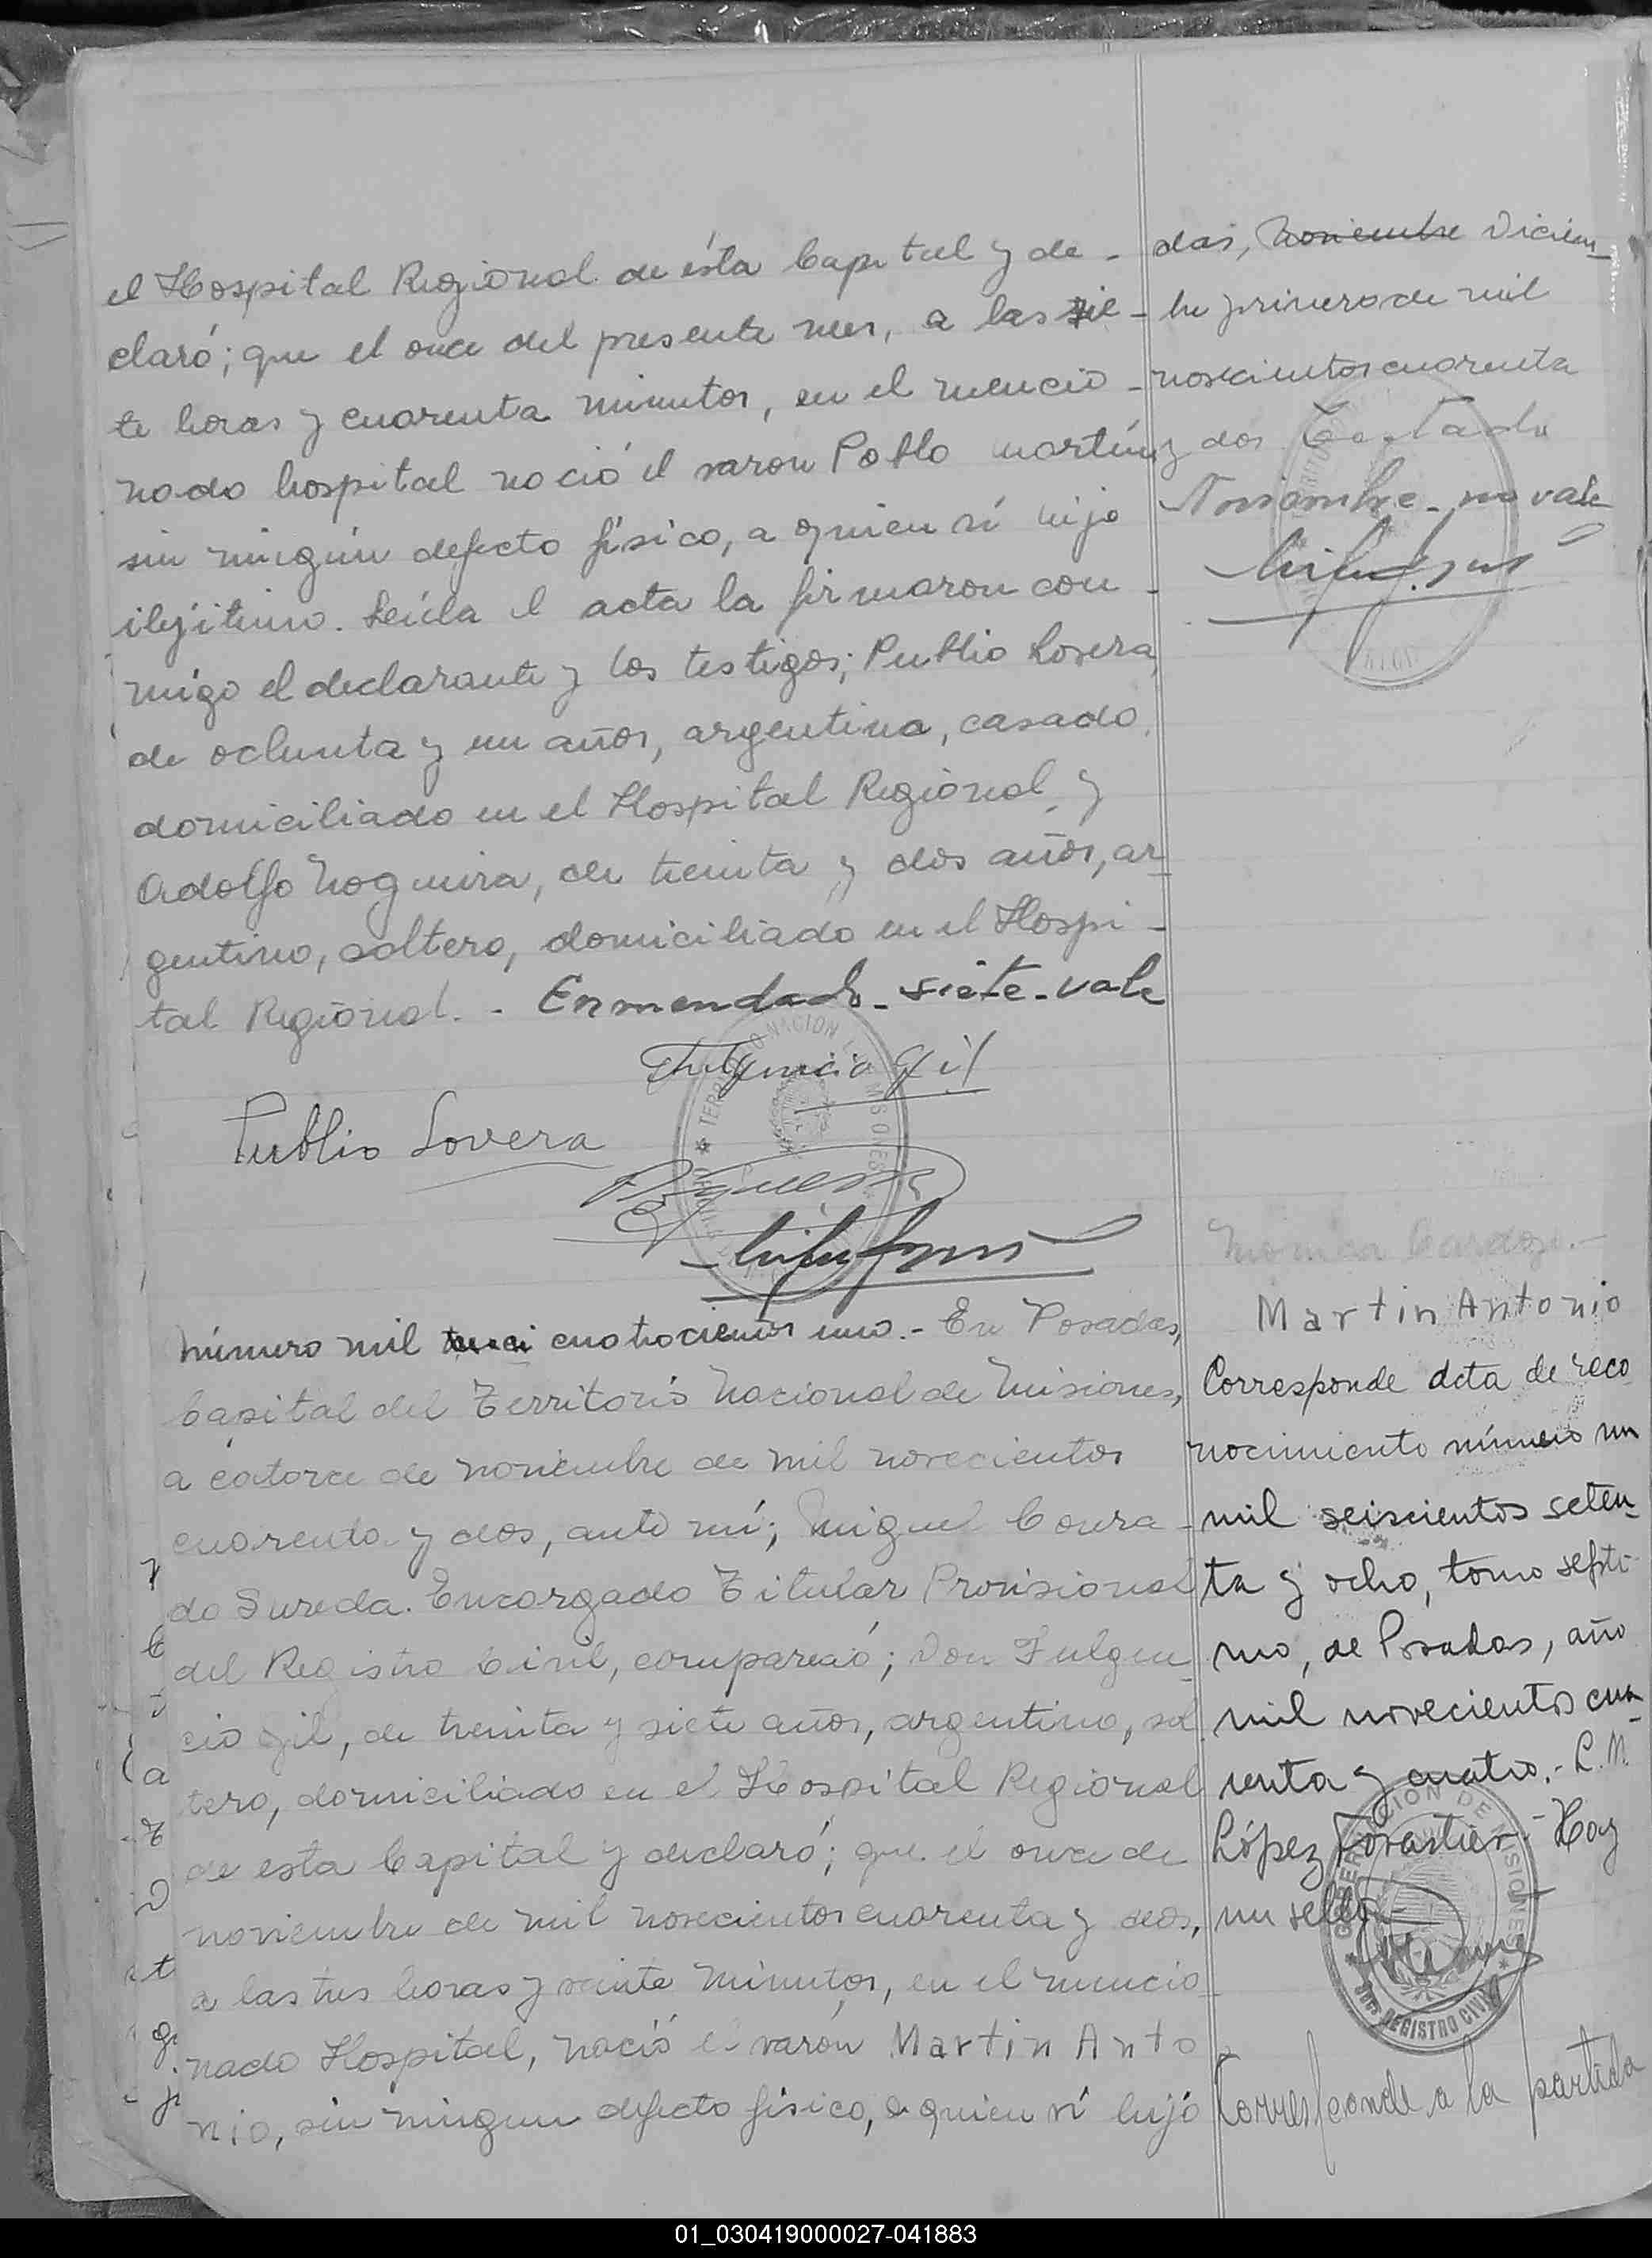 el Hospital Regional de ésta Capital y de -
claró; que el once del presente mes, a las sie -
te horas y cuarenta minutos, en el mencio -
nado hospital nació el varon Pablo Martín
sin ningún defecto físico, a quien ví hijo
ilejitimo. Leída el acta la firmaron con -
migo el declarante y los testigos; Publio Lovera,
de ochenta y un años, argentino, casado,
domiciliado en el Hospital Regional y
Adolfo Nogueira, de treinta y dos años, ar
gentino, soltero, domiciliado en el Hospi -
tal Regional. - Enmendado - siete - vale
Fulgencio Gil
Publio Lovera
das, Noviembre Diciem-
bre primero de mil
novecientos cuarenta
y dos Testado
Noviembre - no vale
Número mil cuatrocientos uno. - En Posadas,
Capital del Territorio Nacional de Misiones,
a catorce de noviembre de mil novecientos
cuarenta y dos, ante mí; Miguel Conra -
do Sureda. Encargado Titular Provisional
del Registro Civil, compareció; Don Fulgen
cio Gil, de treinta y siete años, argentino, sol
tero, domiciliado en el Hospital Regional
de esta Capital y declaró; que el once de
noviembre de mil novecientos cuarenta y dos,
a las tres horas y veinte minutos, en el mencio
nado Hospital, nació el varón Martin Anto
nio, sin ningun defecto físico, a quien ví hijo
Martin Antonio
Corresponde acta de reco
nocimiento número un
mil seiscientos seten-
ta y ocho, tomo septi
mo, de Posadas, año
mil novecientos cua
renta y cuatro. - L. M.
López Forastier. - Hay
un sello. -
GOBERNACION DE MISIONES
REGISTRO CIVIL
Corresponde a la partida
01_030419000027-041883